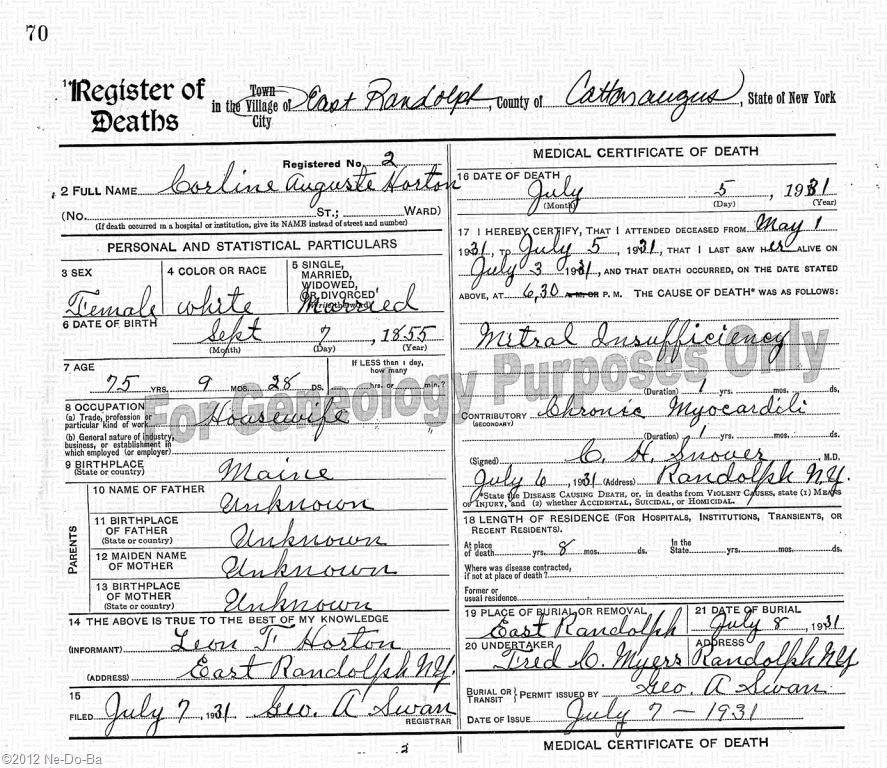 70
1 Register of Deaths
Town
in the Village of East Randolph, County of Cattaraugus, State of New York
City
Registered No. 2
2 FULL NAME Corline Auguste Horton
(No. ST.; WARD)
(If death occurred in a hospital or institution, give its NAME instead of street and number)
PERSONAL AND STATISTICAL PARTICULARS
3 SEX Female
4 COLOR OR RACE white
5 SINGLE, MARRIED, WIDOWED, OR DIVORCED Married
(Write the word)
6 DATE OF BIRTH Sept 7, 1855
(Month) (Day) (Year)
7 AGE
75 YRS. 9 MOS. 28 DS.
If LESS than 1 day, how many
hrs. or min.?
8 OCCUPATION
(a) Trade, profession or particular kind of work Housewife
(b) General nature of industry, business, or establishment in which employed (or employer) "
9 BIRTHPLACE
(State or country) Maine
PARENTS
10 NAME OF FATHER Unknown
11 BIRTHPLACE OF FATHER
(State or country) Unknown
12 MAIDEN NAME OF MOTHER Unknown
13 BIRTHPLACE OF MOTHER
(State or country) Unknown
14 THE ABOVE IS TRUE TO THE BEST OF MY KNOWLEDGE
(INFORMANT) Leon F Horton
(ADDRESS) East Randolph NY.
15
FILED July 7, 1931 Geo. A Swan
REGISTRAR
MEDICAL CERTIFICATE OF DEATH
16 DATE OF DEATH
July 5, 1931
(Month) (Day) (Year)
17 I HEREBY CERTIFY, THAT I ATTENDED DECEASED FROM May 1
1931, TO July 5, 1931, THAT I LAST SAW Her ALIVE ON
July 3 1931, AND THAT DEATH OCCURRED, ON THE DATE STATED
ABOVE, AT 6,30 A.M. OR P. M. THE CAUSE OF DEATH* WAS AS FOLLOWS:
Mitral Insufficiency
(Duration) 1 yrs. mos. ds.
CONTRIBUTORY Chronic Myocarditi
(SECONDARY)
(Duration) 1 yrs. mos. ds.
(Signed) C. H. Snover M.D.
July 6, 1931 (Address) Randolph N.Y.
*State the DISEASE CAUSING DEATH, or, in deaths from VIOLENT CAUSES, state (1) MEANS
OF INJURY, and (2) whether ACCIDENTAL, SUICIDAL, or HOMICIDAL.
18 LENGTH OF RESIDENCE (FOR HOSPITALS, INSTITUTIONS, TRANSIENTS, OR
RECENT RESIDENTS).
At place of death yrs. 8 mos. ds.
In the State yrs. mos. ds.
Where was disease contracted,
if not at place of death?
Former or
usual residence
19 PLACE OF BURIAL OR REMOVAL
East Randolph
21 DATE OF BURIAL
July 8, 1931
20 UNDERTAKER
Fred C. Myers
ADDRESS
Randolph NY
BURIAL OR TRANSIT } PERMIT ISSUED BY Geo. A Swan
DATE OF ISSUE July 7 - 1931
2
MEDICAL CERTIFICATE OF DEATH
For Geneology Purposes Only
©2012 Ne-Do-Ba